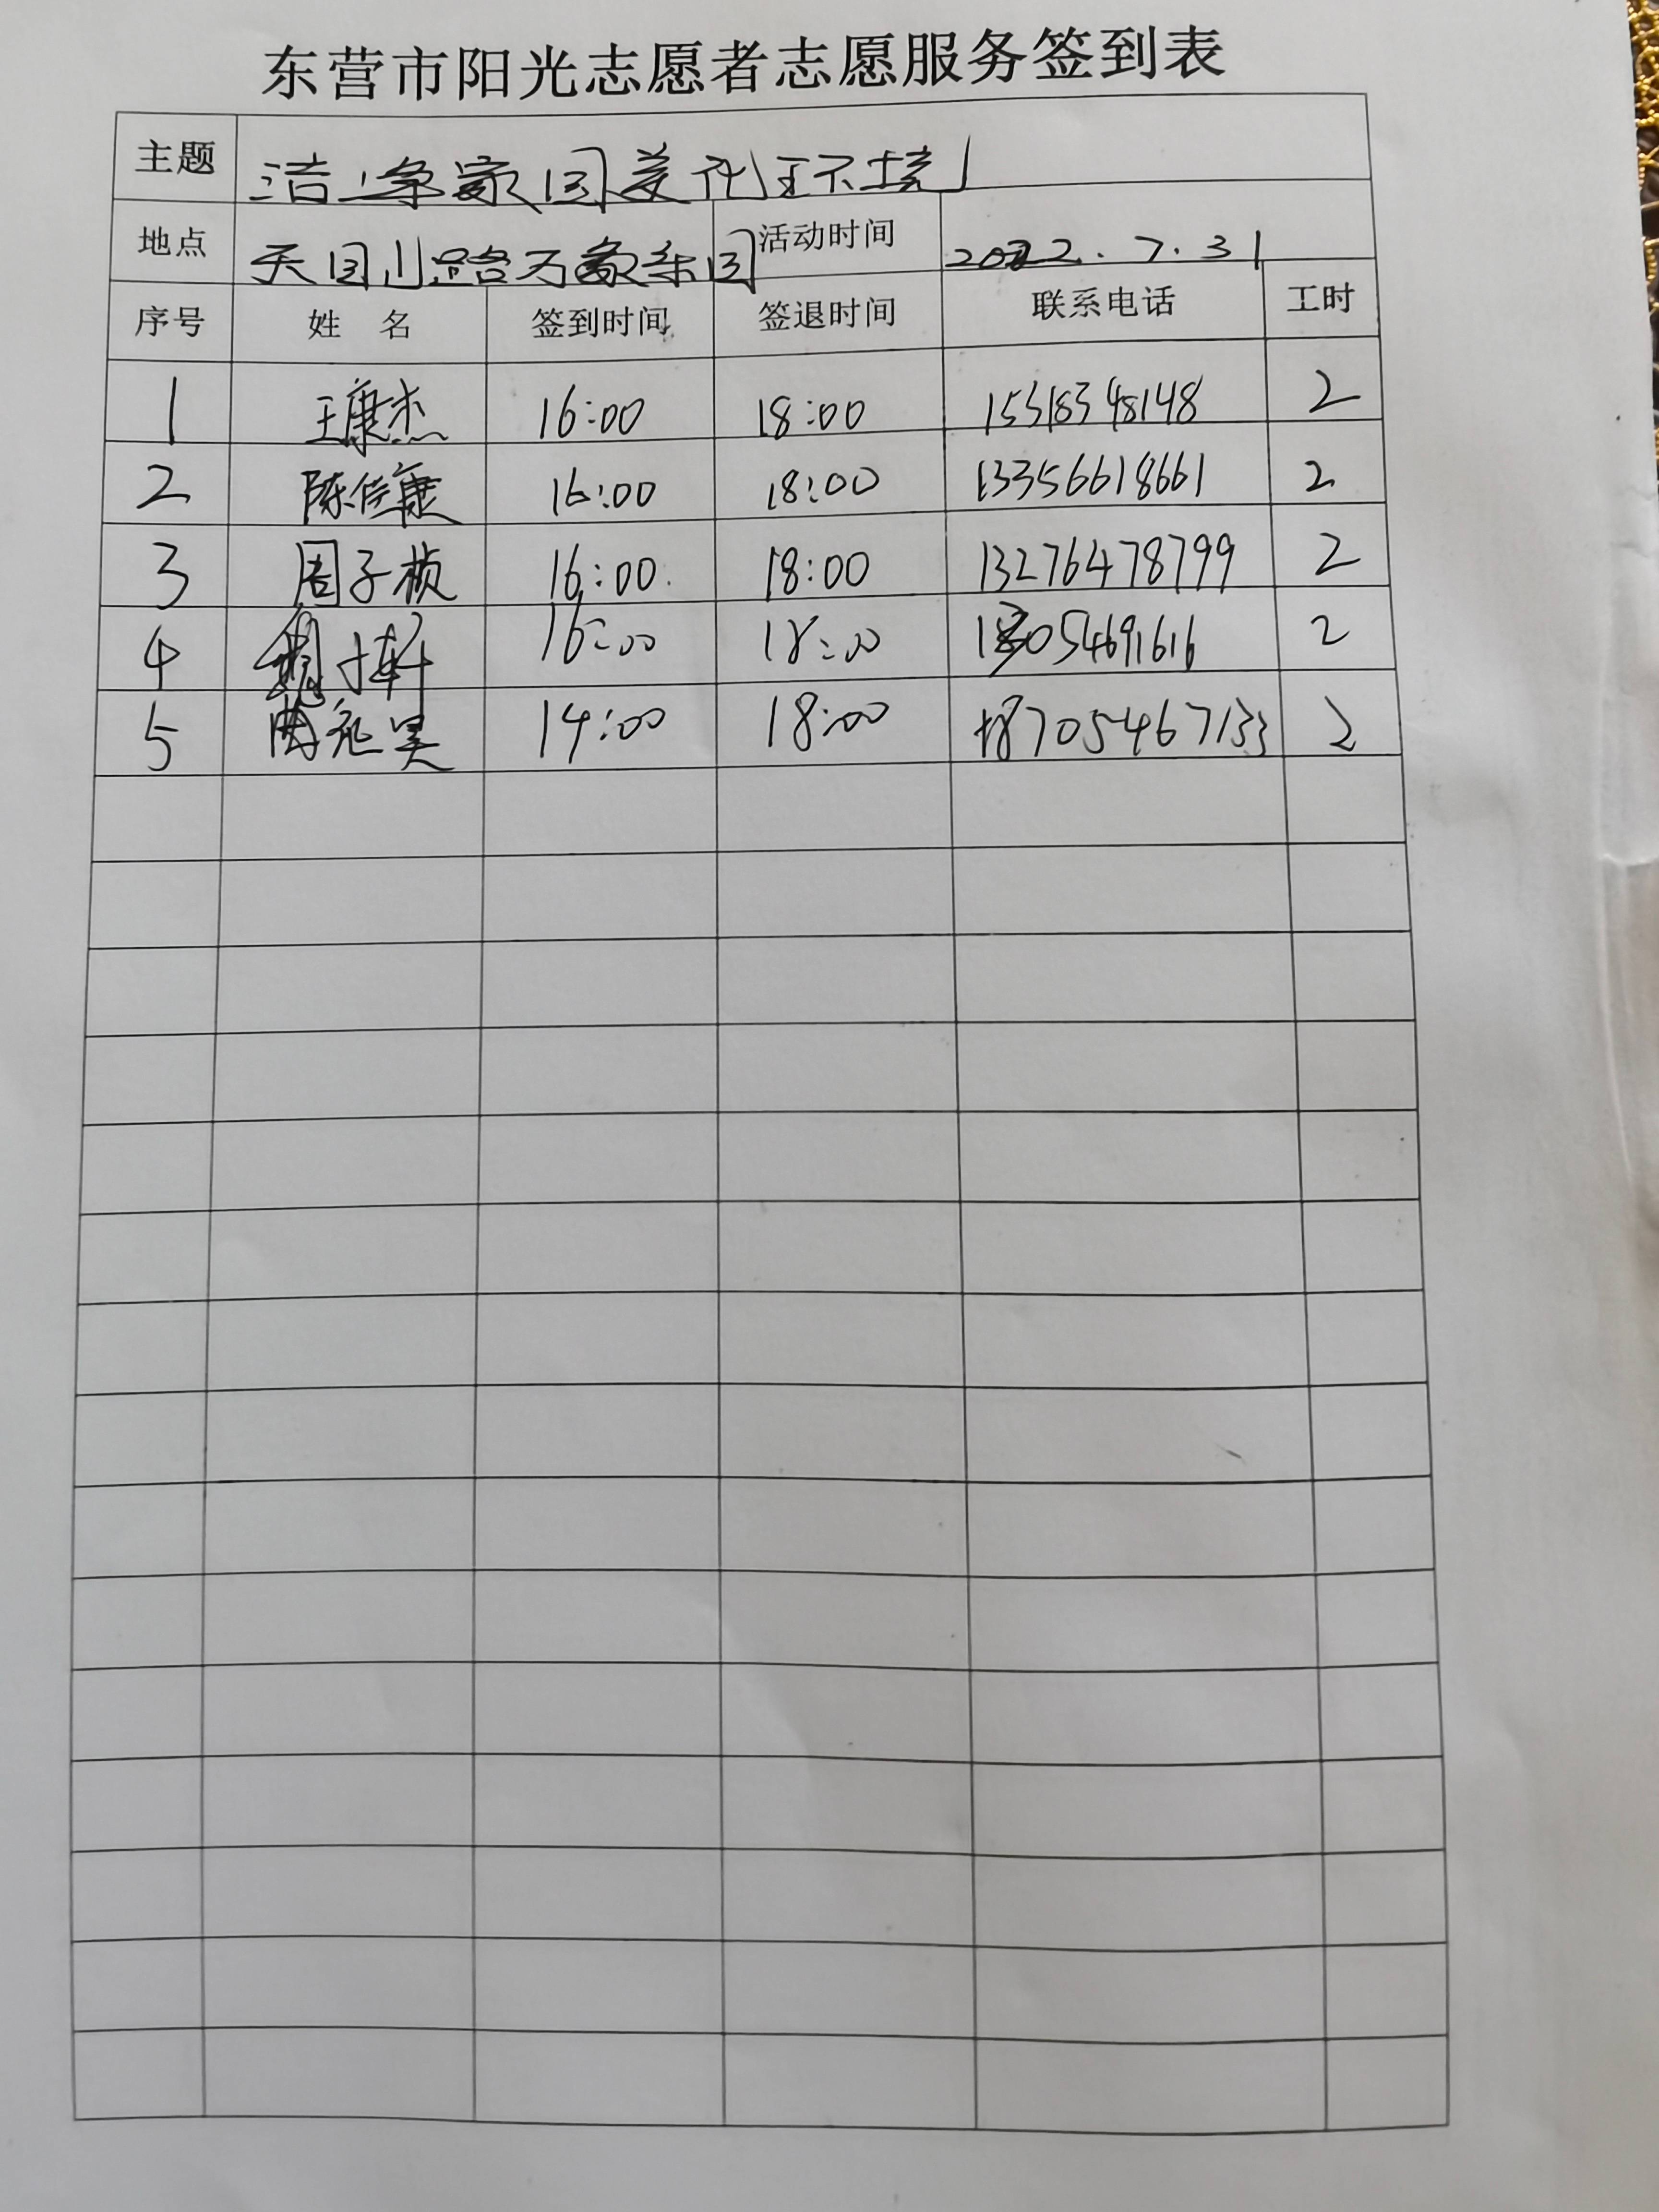 东营市阳光志愿者志愿服务签到表
主题 洁净家园美化环境
地点 天目山路万象东园 活动时间 2022.7.31
序号 姓名 签到时间 签退时间 联系电话 工时
1 王康杰 16:00 18:00 15318348148 2
2 陈佳康 16:00 18:00 13356618661 2
3 周子桢 16:00 18:00 13276478799 2
4 16:00 18:00 2
5 14:00 18:00 18705467133 2